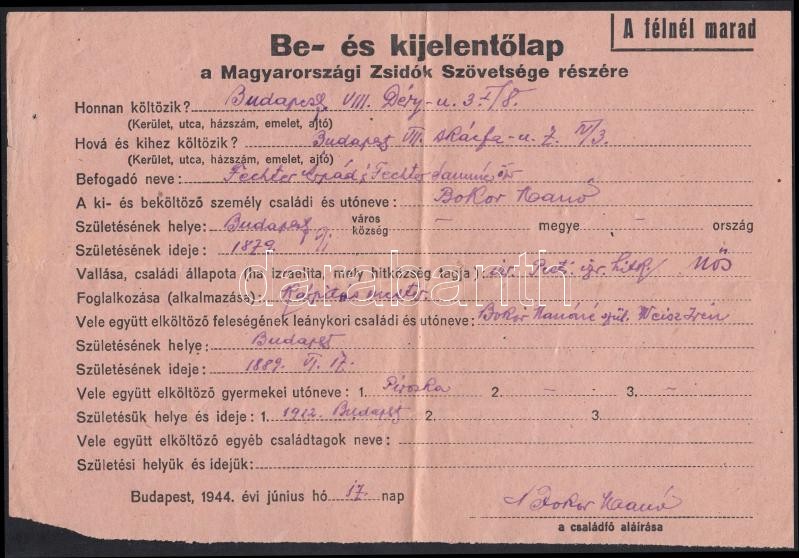 A félnél marad
Be- és kijelentőlap
a Magyarországi Zsidók Szövetsége részére
Honnan költözik? Budapest VIII. Déry-u. 3.
(Kerület, utca, házszám, emelet, ajtó)
Hová és kihez költözik? Budapest VII. Akácfa-u. 7. IV/3.
(Kerület, utca, házszám, emelet, ajtó)
Befogadó neve: Fechter Árpád; Fechter
A ki- és beköltöző személy családi és utóneve: Bokor Manó
Születésének helye: Budapest város község – megye – ország
Születésének ideje: 1879.
Vallása, családi állapota (ha izraelita, mely hitközség tagja): izr. Pesti izr. hitk. Nős
Foglalkozása (alkalmazása): Kárpitosmester
Vele együtt elköltöző feleségének leánykori családi és utóneve: Bokor Manóné szül. Weisz Irén
Születésének helye: Budapest
Születésének ideje: 1889. VI. 17.
Vele együtt elköltöző gyermekei utóneve: 1. Piroska 2. – 3. –
Születésük helye és ideje: 1. 1912. Budapest 2. 3.
Vele együtt elköltöző egyéb családtagok neve:
Születési helyük és idejük:
Budapest, 1944. évi június hó 17. nap
Bokor Manó
a családfő aláírása
darabanth